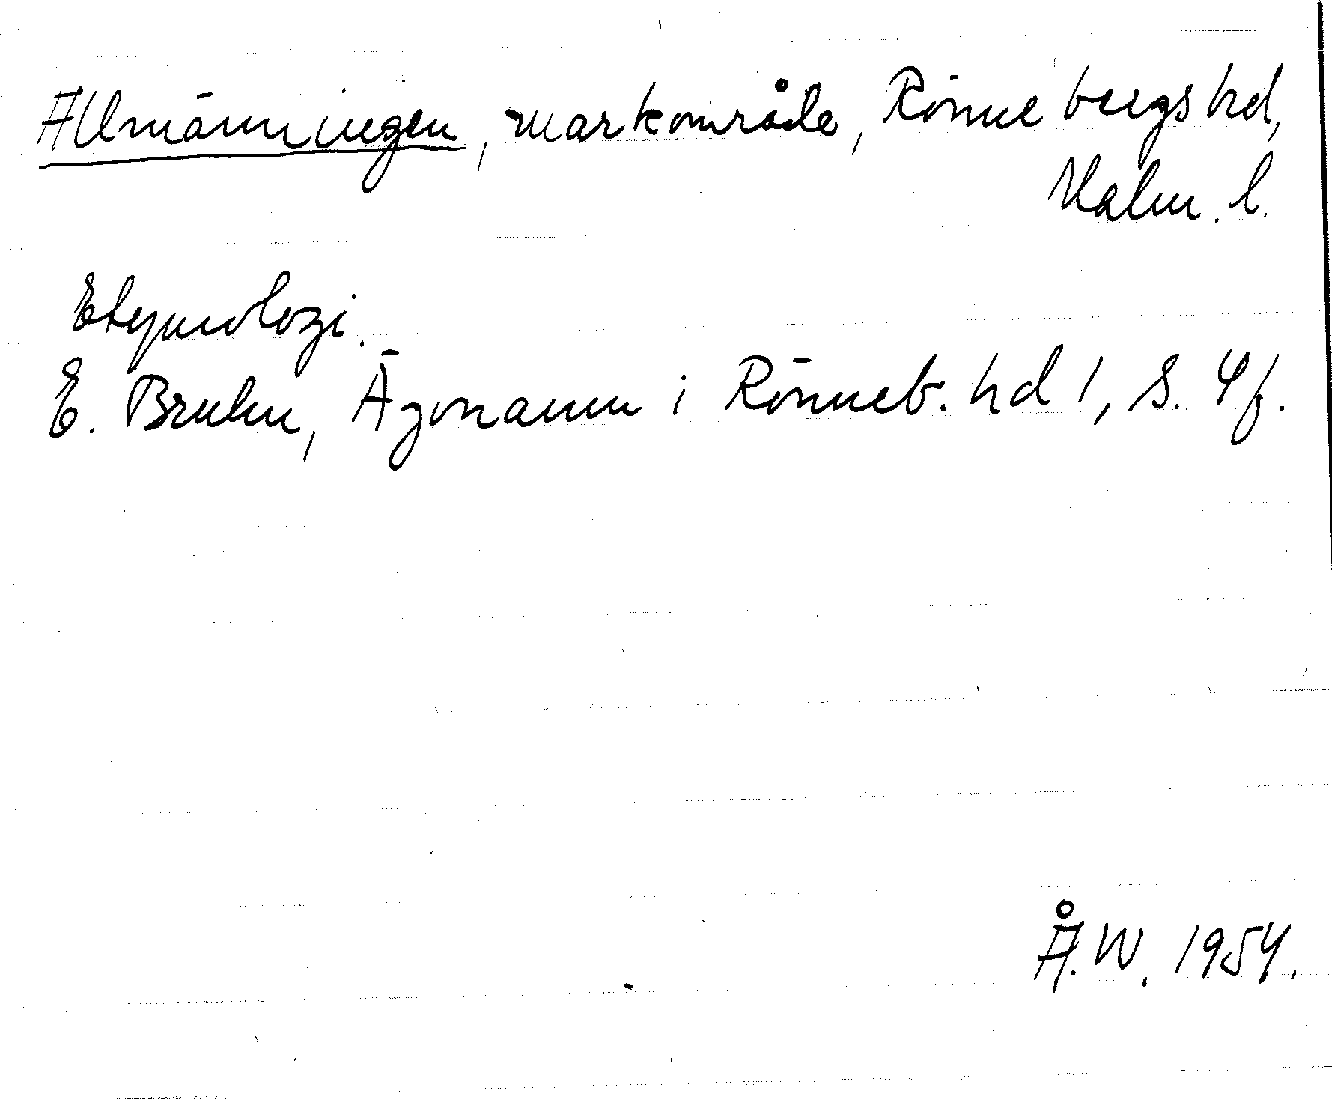 Allmänningen, markområde, Rönnebergs hd,
Malm. l.
Etymologi.
E. Bruhn, Ägonamn i Rönneb. hd 1, S. 4 f.
Å.W. 1954.